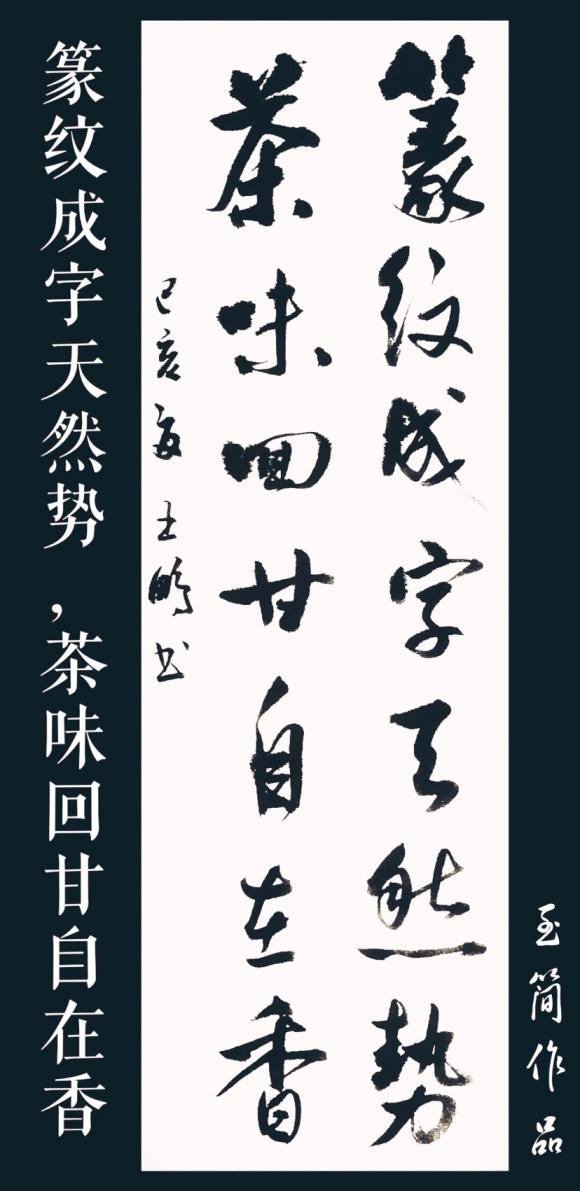 篆纹成字天然势，茶味回甘自在香
篆纹成字天然勢
茶味回甘自在香
己亥夏 王鹏书
至简作品